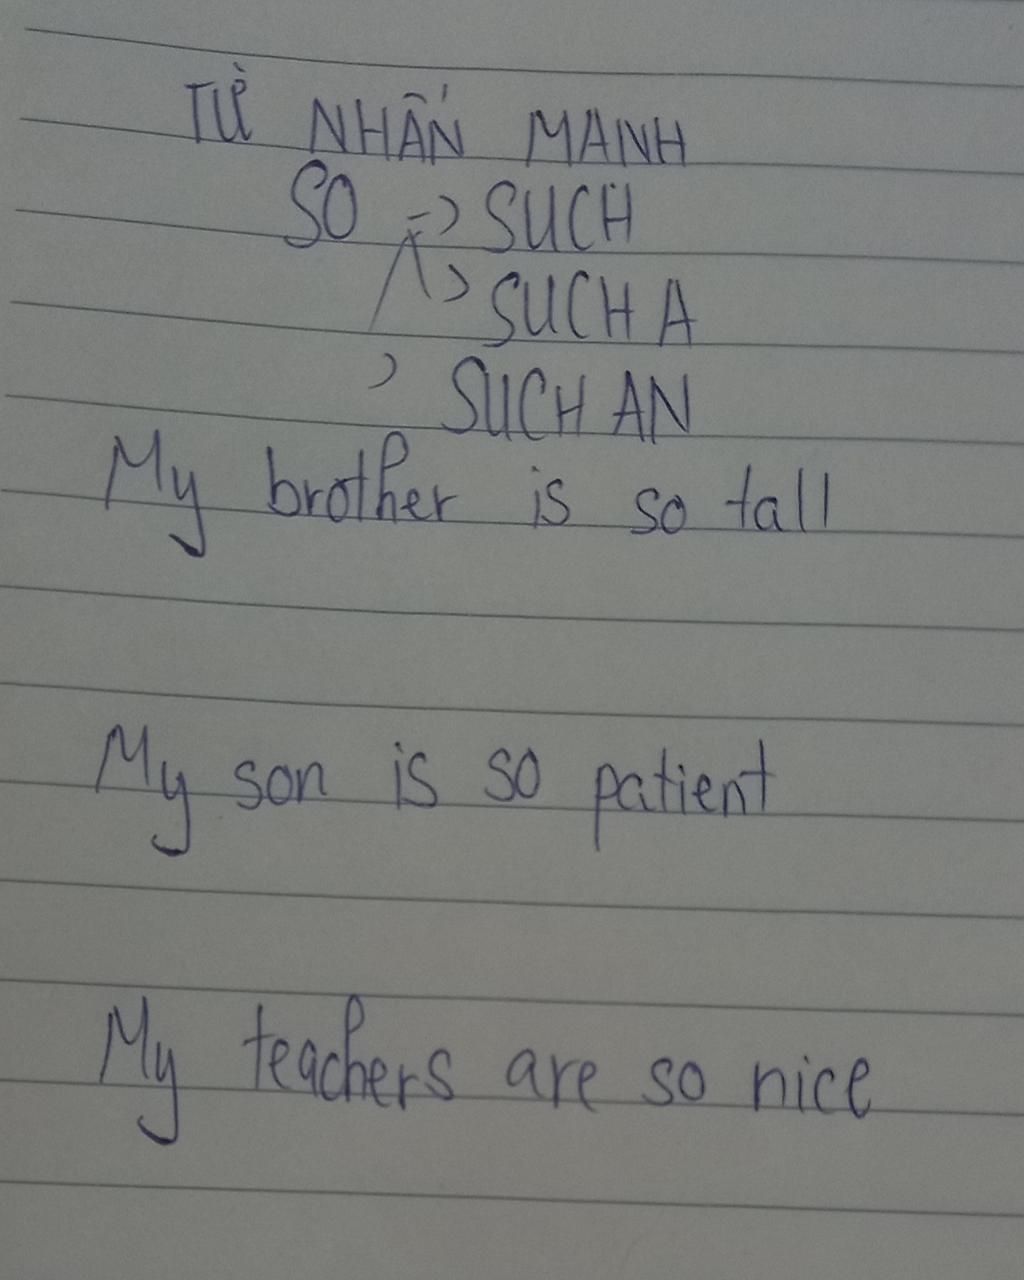 TỪ NHẤN MANH
SO => SUCH
> SUCH A
> SUCH AN
My brother is so tall
My son is so patient
My teachers are so nice